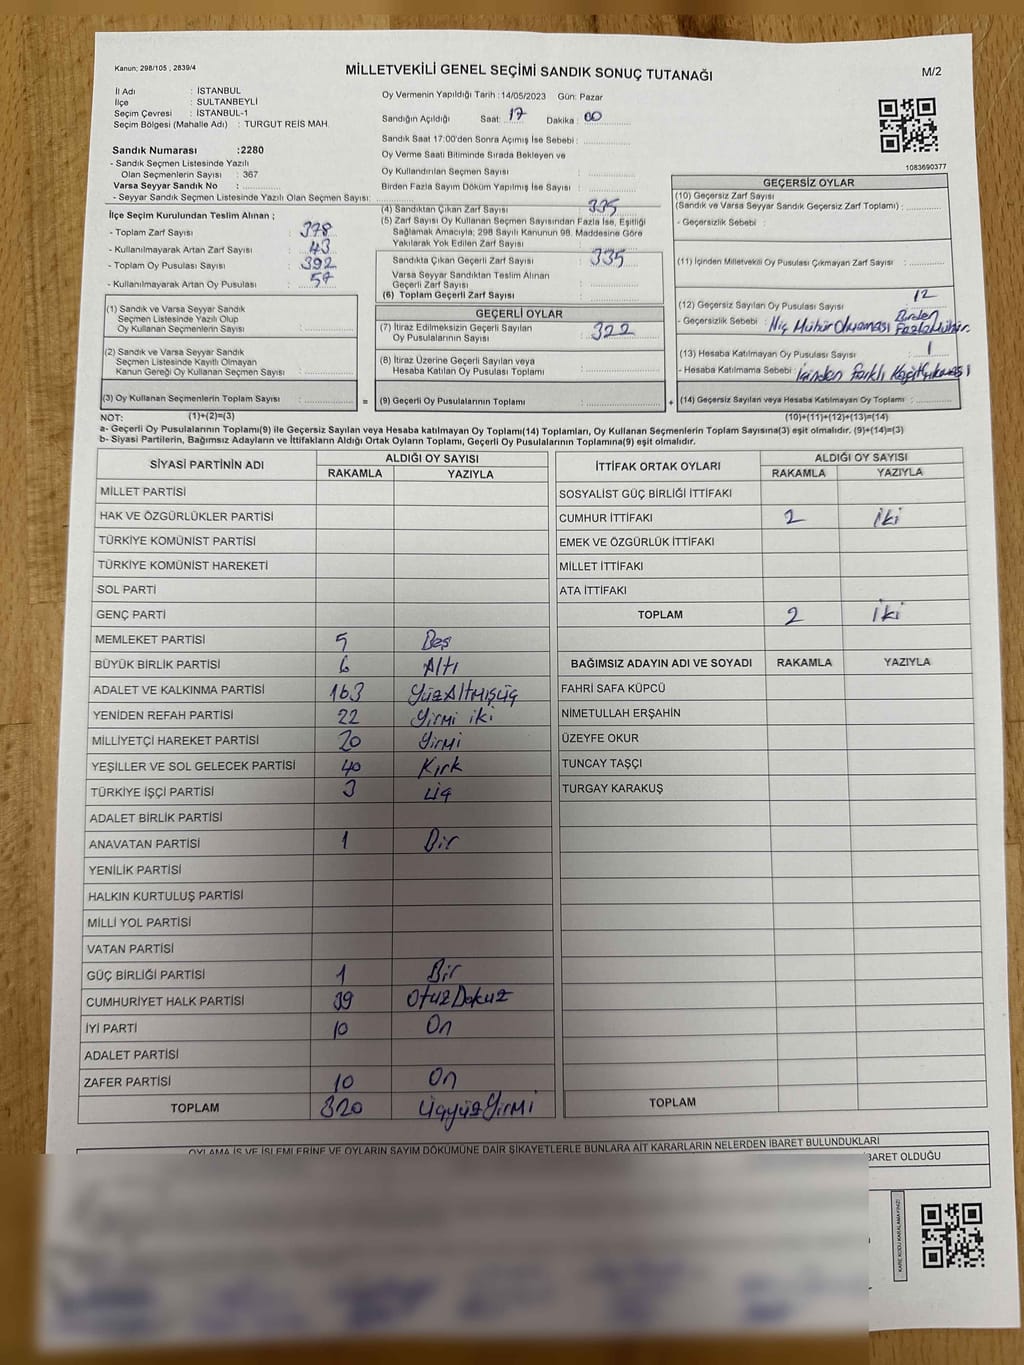 Kanun; 298/105 , 2839/4
MİLLETVEKİLİ GENEL SEÇİMİ SANDIK SONUÇ TUTANAĞI
M/2
İl Adı : İSTANBUL
İlçe : SULTANBEYLİ
Seçim Çevresi : İSTANBUL-1
Seçim Bölgesi (Mahalle Adı) : TURGUT REİS MAH.
Oy Vermenin Yapıldığı Tarih : 14/05/2023 Gün: Pazar
Sandığın Açıldığı Saat: 17 Dakika : 00
Sandık Saat 17:00'den Sonra Açımış İse Sebebi :
Oy Verme Saati Bitiminde Sırada Bekleyen ve
Oy Kullandırılan Seçmen Sayısı :
Birden Fazla Sayım Döküm Yapılmış İse Sayısı :
1083690377
Sandık Numarası :2280
- Sandık Seçmen Listesinde Yazılı
Olan Seçmenlerin Sayısı : 367
Varsa Seyyar Sandık No :
- Seyyar Sandık Seçmen Listesinde Yazılı Olan Seçmen Sayısı:
İlçe Seçim Kurulundan Teslim Alınan ;
- Toplam Zarf Sayısı : 378
- Kullanılmayarak Artan Zarf Sayısı : 43
- Toplam Oy Pusulası Sayısı : 392
- Kullanılmayarak Artan Oy Pusulası : 57
(1) Sandık ve Varsa Seyyar Sandık
Seçmen Listesinde Yazılı Olup
Oy Kullanan Seçmenlerin Sayısı :
(2) Sandık ve Varsa Seyyar Sandık
Seçmen Listesinde Kayıtlı Olmayan
Kanun Gereği Oy Kullanan Seçmen Sayısı :
(3) Oy Kullanan Seçmenlerin Toplam Sayısı :
(4) Sandıktan Çıkan Zarf Sayısı : 335
(5) Zarf Sayısı Oy Kullanan Seçmen Sayısından Fazla İse, Eşitliği
Sağlamak Amacıyla; 298 Sayılı Kanunun 98. Maddesine Göre
Yakılarak Yok Edilen Zarf Sayısı :
Sandıkta Çıkan Geçerli Zarf Sayısı : 335
Varsa Seyyar Sandıktan Teslim Alınan
Geçerli Zarf Sayısı :
(6) Toplam Geçerli Zarf Sayısı :
GEÇERLİ OYLAR
(7) İtiraz Edilmeksizin Geçerli Sayılan
Oy Pusulalarının Sayısı : 322
(8) İtiraz Üzerine Geçerli Sayılan veya
Hesaba Katılan Oy Pusulası Toplamı :
= (9) Geçerli Oy Pusulalarının Toplamı :
GEÇERSİZ OYLAR
(10) Geçersiz Zarf Sayısı
(Sandık ve Varsa Seyyar Sandık Geçersiz Zarf Toplamı) :
- Geçersizlik Sebebi :
(11) İçinden Milletvekili Oy Pusulası Çıkmayan Zarf Sayısı :
(12) Geçersiz Sayılan Oy Pusulası Sayısı : 12
- Geçersizlik Sebebi : Hiç Mühür Olmaması Birden Fazla Mühür.
(13) Hesaba Katılmayan Oy Pusulası Sayısı : 1
- Hesaba Katılmama Sebebi : İçinden Farklı Kağıt Çıkması
+ (14) Geçersiz Sayılan veya Hesaba Katılmayan Oy Toplamı :
NOT: (1)+(2)=(3)
(10)+(11)+(12)+(13)=(14)
a- Geçerli Oy Pusulalarının Toplamı(9) ile Geçersiz Sayılan veya Hesaba katılmayan Oy Toplamı(14) Toplamları, Oy Kullanan Seçmenlerin Toplam Sayısına(3) eşit olmalıdır. (9)+(14)=(3)
b- Siyasi Partilerin, Bağımsız Adayların ve İttifakların Aldığı Ortak Oyların Toplamı, Geçerli Oy Pusulalarının Toplamına(9) eşit olmalıdır.
SİYASİ PARTİNİN ADI ALDIĞI OY SAYISI
RAKAMLA YAZIYLA
MİLLET PARTİSİ
HAK VE ÖZGÜRLÜKLER PARTİSİ
TÜRKİYE KOMÜNİST PARTİSİ
TÜRKİYE KOMÜNİST HAREKETİ
SOL PARTİ
GENÇ PARTİ
MEMLEKET PARTİSİ 5 Beş
BÜYÜK BİRLİK PARTİSİ 6 Altı
ADALET VE KALKINMA PARTİSİ 163 YüzAltmışüç
YENİDEN REFAH PARTİSİ 22 Yirmi iki
MİLLİYETÇİ HAREKET PARTİSİ 20 Yirmi
YEŞİLLER VE SOL GELECEK PARTİSİ 40 Kırk
TÜRKİYE İŞÇİ PARTİSİ 3 üç
ADALET BİRLİK PARTİSİ
ANAVATAN PARTİSİ 1 Bir
YENİLİK PARTİSİ
HALKIN KURTULUŞ PARTİSİ
MİLLİ YOL PARTİSİ
VATAN PARTİSİ
GÜÇ BİRLİĞİ PARTİSİ 1 Bir
CUMHURİYET HALK PARTİSİ 39 OtuzDokuz
İYİ PARTİ 10 On
ADALET PARTİSİ
ZAFER PARTİSİ 10 On
TOPLAM 320 ÜçyüzYirmi
İTTİFAK ORTAK OYLARI ALDIĞI OY SAYISI
RAKAMLA YAZIYLA
SOSYALİST GÜÇ BİRLİĞİ İTTİFAKI
CUMHUR İTTİFAKI 2 İki
EMEK VE ÖZGÜRLÜK İTTİFAKI
MİLLET İTTİFAKI
ATA İTTİFAKI
TOPLAM 2 İki
BAĞIMSIZ ADAYIN ADI VE SOYADI RAKAMLA YAZIYLA
FAHRİ SAFA KÜPCÜ
NİMETULLAH ERŞAHİN
ÜZEYFE OKUR
TUNCAY TAŞÇI
TURGAY KARAKUŞ
TOPLAM
OYLAMA İŞ VE İŞLEMLERİNE VE OYLARIN SAYIM DÖKÜMÜNE DAİR ŞİKAYETLERLE BUNLARA AİT KARARLARIN NELERDEN İBARET BULUNDUKLARI
İBARET OLDUĞU